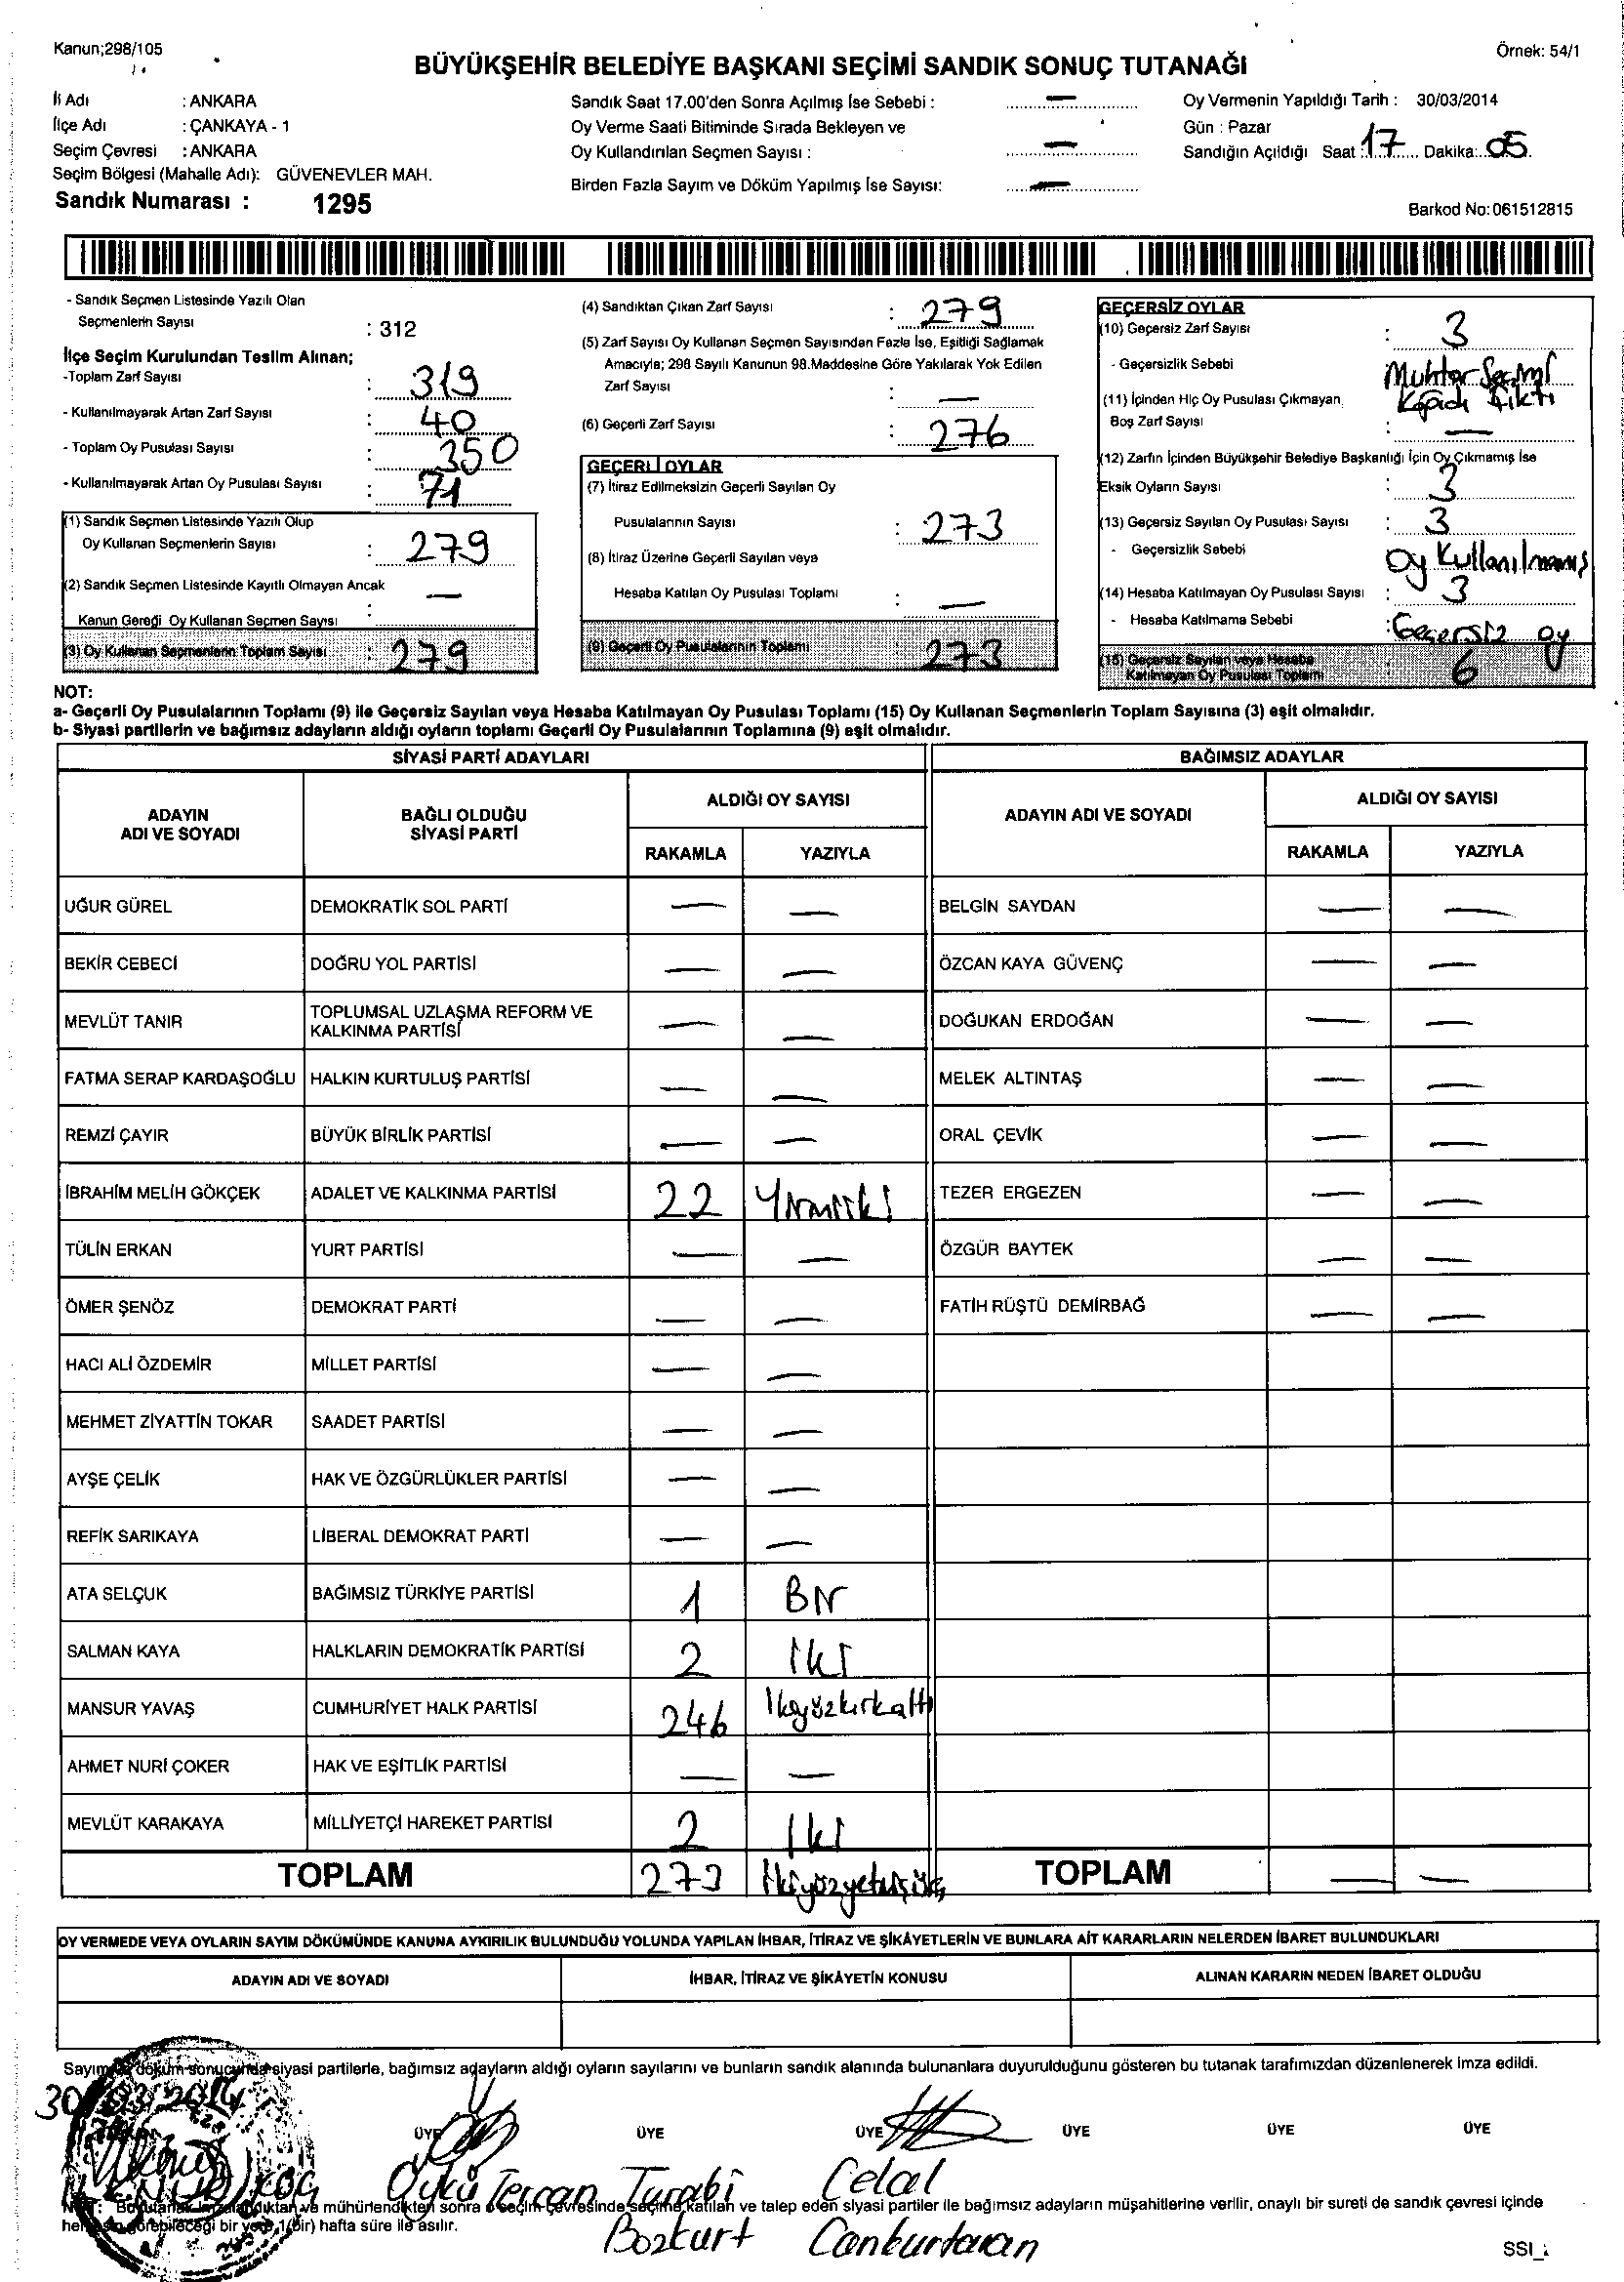 Kanun;298/105
Örnek: 54/1
BÜYÜKŞEHİR BELEDİYE BAŞKANI SEÇİMİ SANDIK SONUÇ TUTANAĞI
İl Adı : ANKARA
İlçe Adı : ÇANKAYA - 1
Seçim Çevresi : ANKARA
Seçim Bölgesi (Mahalle Adı): GÜVENEVLER MAH.
Sandık Numarası : 1295
Sandık Saat 17.00'den Sonra Açılmış İse Sebebi : —
Oy Verme Saati Bitiminde Sırada Bekleyen ve
Oy Kullandırılan Seçmen Sayısı : —
Birden Fazla Sayım ve Döküm Yapılmış İse Sayısı: —
Oy Vermenin Yapıldığı Tarih : 30/03/2014
Gün : Pazar
Sandığın Açıldığı Saat : 17 Dakika: 05
Barkod No:061512815
- Sandık Seçmen Listesinde Yazılı Olan
Seçmenlerin Sayısı : 312
İlçe Seçim Kurulundan Teslim Alınan;
-Toplam Zarf Sayısı : 319
- Kullanılmayarak Artan Zarf Sayısı : 40
- Toplam Oy Pusulası Sayısı : 350
- Kullanılmayarak Artan Oy Pusulası Sayısı : 71
(1) Sandık Seçmen Listesinde Yazılı Olup
Oy Kullanan Seçmenlerin Sayısı : 279
(2) Sandık Seçmen Listesinde Kayıtlı Olmayan Ancak
Kanun Gereği Oy Kullanan Seçmen Sayısı : —
(3) Oy Kullanan Seçmenlerin Toplam Sayısı : 279
(4) Sandıktan Çıkan Zarf Sayısı : 279
(5) Zarf Sayısı Oy Kullanan Seçmen Sayısından Fazla İse, Eşitliği Sağlamak
Amacıyla; 298 Sayılı Kanunun 98.Maddesine Göre Yakılarak Yok Edilen
Zarf Sayısı : —
(6) Geçerli Zarf Sayısı : 276
GEÇERLİ OYLAR
(7) İtiraz Edilmeksizin Geçerli Sayılan Oy
Pusulalarının Sayısı : 273
(8) İtiraz Üzerine Geçerli Sayılan veya
Hesaba Katılan Oy Pusulası Toplamı : —
(9) Geçerli Oy Pusulalarının Toplamı : 273
GEÇERSİZ OYLAR
(10) Geçersiz Zarf Sayısı : 3
- Geçersizlik Sebebi Muhtar Seçimi
Kağıdı Çıktı
(11) İçinden Hiç Oy Pusulası Çıkmayan
Boş Zarf Sayısı : —
(12) Zarfın İçinden Büyükşehir Belediye Başkanlığı İçin Oy Çıkmamış İse
Eksik Oyların Sayısı : 3
(13) Geçersiz Sayılan Oy Pusulası Sayısı : 3
- Geçersizlik Sebebi Oy Kullanılmamış
(14) Hesaba Katılmayan Oy Pusulası Sayısı : 3
- Hesaba Katılmama Sebebi : Geçersiz oy
(15) Geçersiz Sayılan veya Hesaba
Katılmayan Oy Pusulası Toplamı : 6
NOT:
a- Geçerli Oy Pusulalarının Toplamı (9) ile Geçersiz Sayılan veya Hesaba Katılmayan Oy Pusulası Toplamı (15) Oy Kullanan Seçmenlerin Toplam Sayısına (3) eşit olmalıdır.
b- Siyasi partilerin ve bağımsız adayların aldığı oyların toplamı Geçerli Oy Pusulalarının Toplamına (9) eşit olmalıdır.
SİYASİ PARTİ ADAYLARI BAĞIMSIZ ADAYLAR
ADAYIN ADI VE SOYADI BAĞLI OLDUĞU SİYASİ PARTİ ALDIĞI OY SAYISI ADAYIN ADI VE SOYADI ALDIĞI OY SAYISI
RAKAMLA YAZIYLA RAKAMLA YAZIYLA
UĞUR GÜREL DEMOKRATİK SOL PARTİ — — BELGİN SAYDAN — —
BEKİR CEBECİ DOĞRU YOL PARTİSİ — — ÖZCAN KAYA GÜVENÇ — —
MEVLÜT TANIR TOPLUMSAL UZLAŞMA REFORM VE KALKINMA PARTİSİ — — DOĞUKAN ERDOĞAN — —
FATMA SERAP KARDAŞOĞLU HALKIN KURTULUŞ PARTİSİ — — MELEK ALTINTAŞ — —
REMZİ ÇAYIR BÜYÜK BİRLİK PARTİSİ — — ORAL ÇEVİK — —
İBRAHİM MELİH GÖKÇEK ADALET VE KALKINMA PARTİSİ 22 Yirmiiki TEZER ERGEZEN — —
TÜLİN ERKAN YURT PARTİSİ — — ÖZGÜR BAYTEK — —
ÖMER ŞENÖZ DEMOKRAT PARTİ — — FATİH RÜŞTÜ DEMİRBAĞ — —
HACI ALİ ÖZDEMİR MİLLET PARTİSİ — —
MEHMET ZİYATTİN TOKAR SAADET PARTİSİ — —
AYŞE ÇELİK HAK VE ÖZGÜRLÜKLER PARTİSİ — —
REFİK SARIKAYA LİBERAL DEMOKRAT PARTİ — —
ATA SELÇUK BAĞIMSIZ TÜRKİYE PARTİSİ 1 Bir
SALMAN KAYA HALKLARIN DEMOKRATİK PARTİSİ 2 İki
MANSUR YAVAŞ CUMHURİYET HALK PARTİSİ 246 İkiyüzkırkaltı
AHMET NURİ ÇOKER HAK VE EŞİTLİK PARTİSİ — —
MEVLÜT KARAKAYA MİLLİYETÇİ HAREKET PARTİSİ 2 İki
TOPLAM 273 İkiyüzyetmişüç TOPLAM — —
OY VERMEDE VEYA OYLARIN SAYIM DÖKÜMÜNDE KANUNA AYKIRILIK BULUNDUĞU YOLUNDA YAPILAN İHBAR, İTİRAZ VE ŞİKÂYETLERİN VE BUNLARA AİT KARARLARIN NELERDEN İBARET BULUNDUKLARI
ADAYIN ADI VE SOYADI İHBAR, İTİRAZ VE ŞİKÂYETİN KONUSU ALINAN KARARIN NEDEN İBARET OLDUĞU
Sayım döküm sonucunda siyasi partilerle, bağımsız adayların aldığı oyların sayılarını ve bunların sandık alanında bulunanlara duyurulduğunu gösteren bu tutanak tarafımızdan düzenlenerek imza edildi.
30/03/2014
ÜYE ÜYE ÜYE ÜYE ÜYE ÜYE
KOÇ Öykü Tercan Turabi Celal
NOT: Bu tutanak imzalandıktan ve mühürlendikten sonra o seçim çevresinde seçime katılan ve talep eden siyasi partiler ile bağımsız adayların müşahitlerine verilir, onaylı bir sureti de sandık çevresi içinde
herkesin görebileceği bir yere 1(bir) hafta süre ile asılır.
Bozkurt Cankurtaran
SSI_